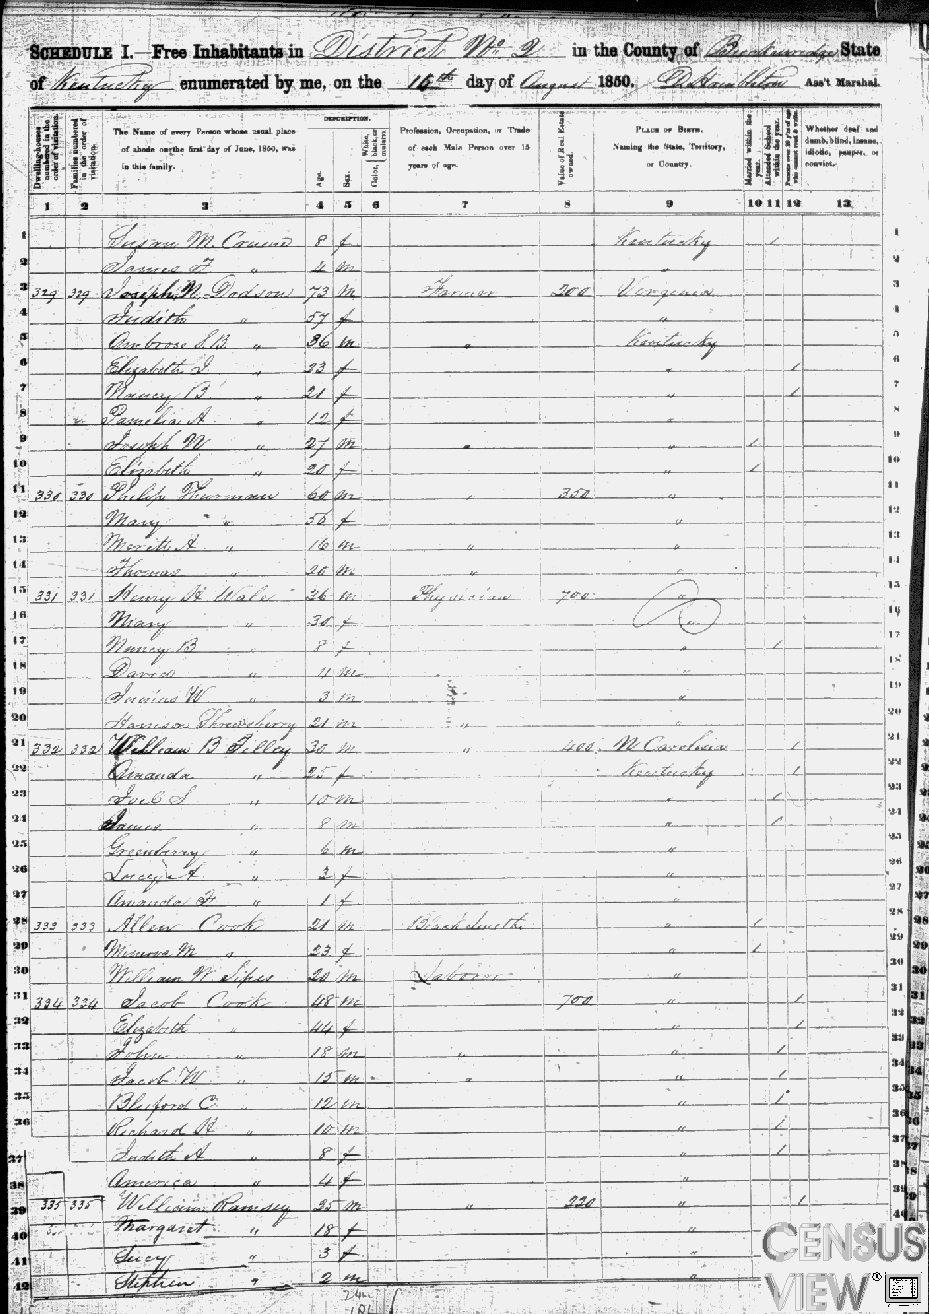 SCHEDULE I.—Free Inhabitants in District No 2 in the County of Breckenridge State
of Kentucky enumerated by me, on the 16th day of August 1850. Ass't Marshal.
Dwelling-houses numbered in the order of visitation.
Families numbered in the order of visitation.
The Name of every Person whose usual place of abode on the first day of June, 1850, was in this family.
DESCRIPTION.
Age.
Sex.
Color, White, black, or mulatto.
Profession, Occupation, or Trade of each Male Person over 15 years of age.
Value of Real Estate owned.
PLACE OF BIRTH. Naming the State, Territory, or Country.
Married within the year.
Attended School within the year.
Persons over 20 y'rs of age who cannot read & write.
Whether deaf and dumb, blind, insane, idiotic, pauper, or convict.
1 2 3 4 5 6 7 8 9 10 11 12 13
1 Susan M. 8 f Kentucky 1 1
2 James F. " 4 m " 2
3 329 329 Joseph N. Dodson 73 M Farmer 200 Virginia 3
4 Judith " 57 f " 4
5 Ambrose S.B. " 36 m " Kentucky 5
6 Elizabeth J. " 23 f " 1 6
7 Nancy B " 21 f " 1 7
8 Pamelia A " 12 f " 8
9 Joseph W " 27 M " " 1 9
10 Elizabeth " 20 f " 1 10
11 330 330 Philip Thurman 60 m " 350 " 11
12 Mary " 56 f " 12
13 Merith A " 16 m " " 13
14 Thomas " 20 M " " 14
15 331 331 Henry H Wales 36 m Physician 700 " 15
16 Mary " 30 f " 16
17 Nancy B " 8 f " 1 17
18 David " 4 m " 18
19 Junius W " 3 m " 19
20 Harrison 21 m " " 20
21 332 332 William B Tilley 30 m " 400 N Carolina 1 21
22 Amanda " 25 f Kentucky 1 22
23 Joel S " 10 m " 1 23
24 James " 8 m " 1 24
25 Greenberry " 6 m " 25
26 Lucy A " 3 f " 26
27 Amanda F " 1 f " 27
28 333 333 Allen Cook 21 m Blacksmith " 1 28
29 Minerva M " 23 f " 1 29
30 William W Sipes 20 m Labour " 30
31 334 334 Jacob Cook 48 m 700 " 1 31
32 Elizabeth " 44 f " 1 32
33 John " 18 m " " 1 33
34 Jacob W " 15 m " " 1 34
35 Bluford C. " 12 m " 1 35
36 Richard H " 10 m " 1 36
37 Judith A " 8 f " 1 37
38 America " 4 f " 38
39 335 335 William Ramsey 25 m " 220 " 1 39
40 Margaret " 18 f " 40
41 Lucy " 3 f " 41
42 Stephen " 2 m " 42
CENSUS
VIEW®